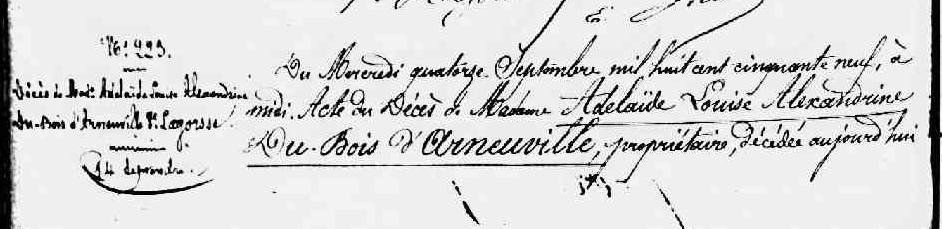 N.º 223.
Décès de Mad.e Adelaïde Louise Alexandrine
Du-Bois d'Arneuville V.e Lagorsse.
14 septembre.
Du Mercredi quatorze Septembre mil huit cent cinquante neuf, à
midi. Acte du Décès de Madame Adelaïde Louise Alexandrine
Du-Bois d'Arneuville, propriétaire, décédée aujourd'hui